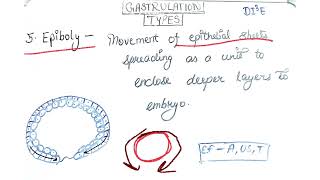 GASTRULATION
TYPES
DI³E
5. Epiboly - Movement of epithelial sheets
spreading as a unit to
enclose deeper layers to
embryo.
Ef - A, US, T